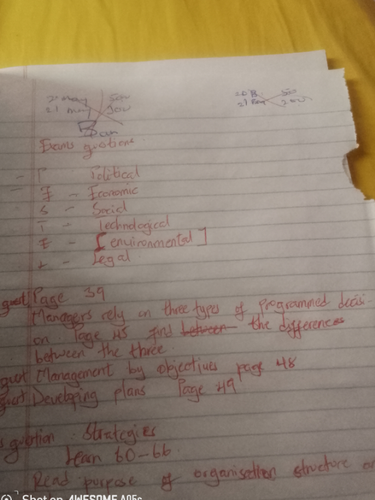 Exams quotions
P - Political
E - Economic
S - Social
T - Technological
E - [environmental]
L - Legal
quot Page 39
Managers rely on three types of Programmed decisi-
on Page 45 find between the differences
between the three
quot Management by objectives page 48
quot Developing plans Page 49
quotion : Strategies
learn 60-66
Read purpose of organisation structure
Shot on AWESOME A05s